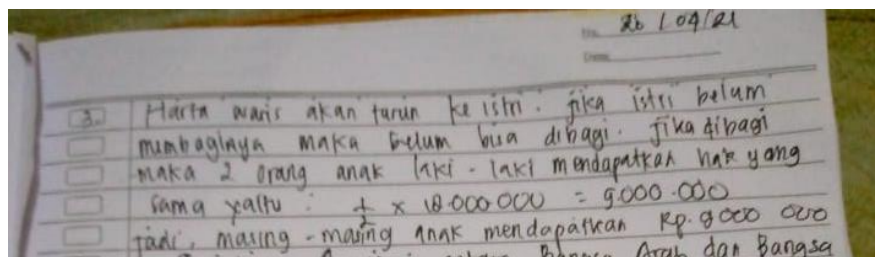 No.
26 / 04/21
Date
3. Harta waris akan turun ke istri. jika istri belum
membaginya maka belum bisa dibagi. Jika dibagi
maka 2 orang anak laki-laki mendapatkan hak yang
sama yaitu : 1/2 x 18.000.000 = 9.000.000
jadi, masing-masing anak mendapatkan Rp. 9000 000
Bangsa Arab dan Bangsa